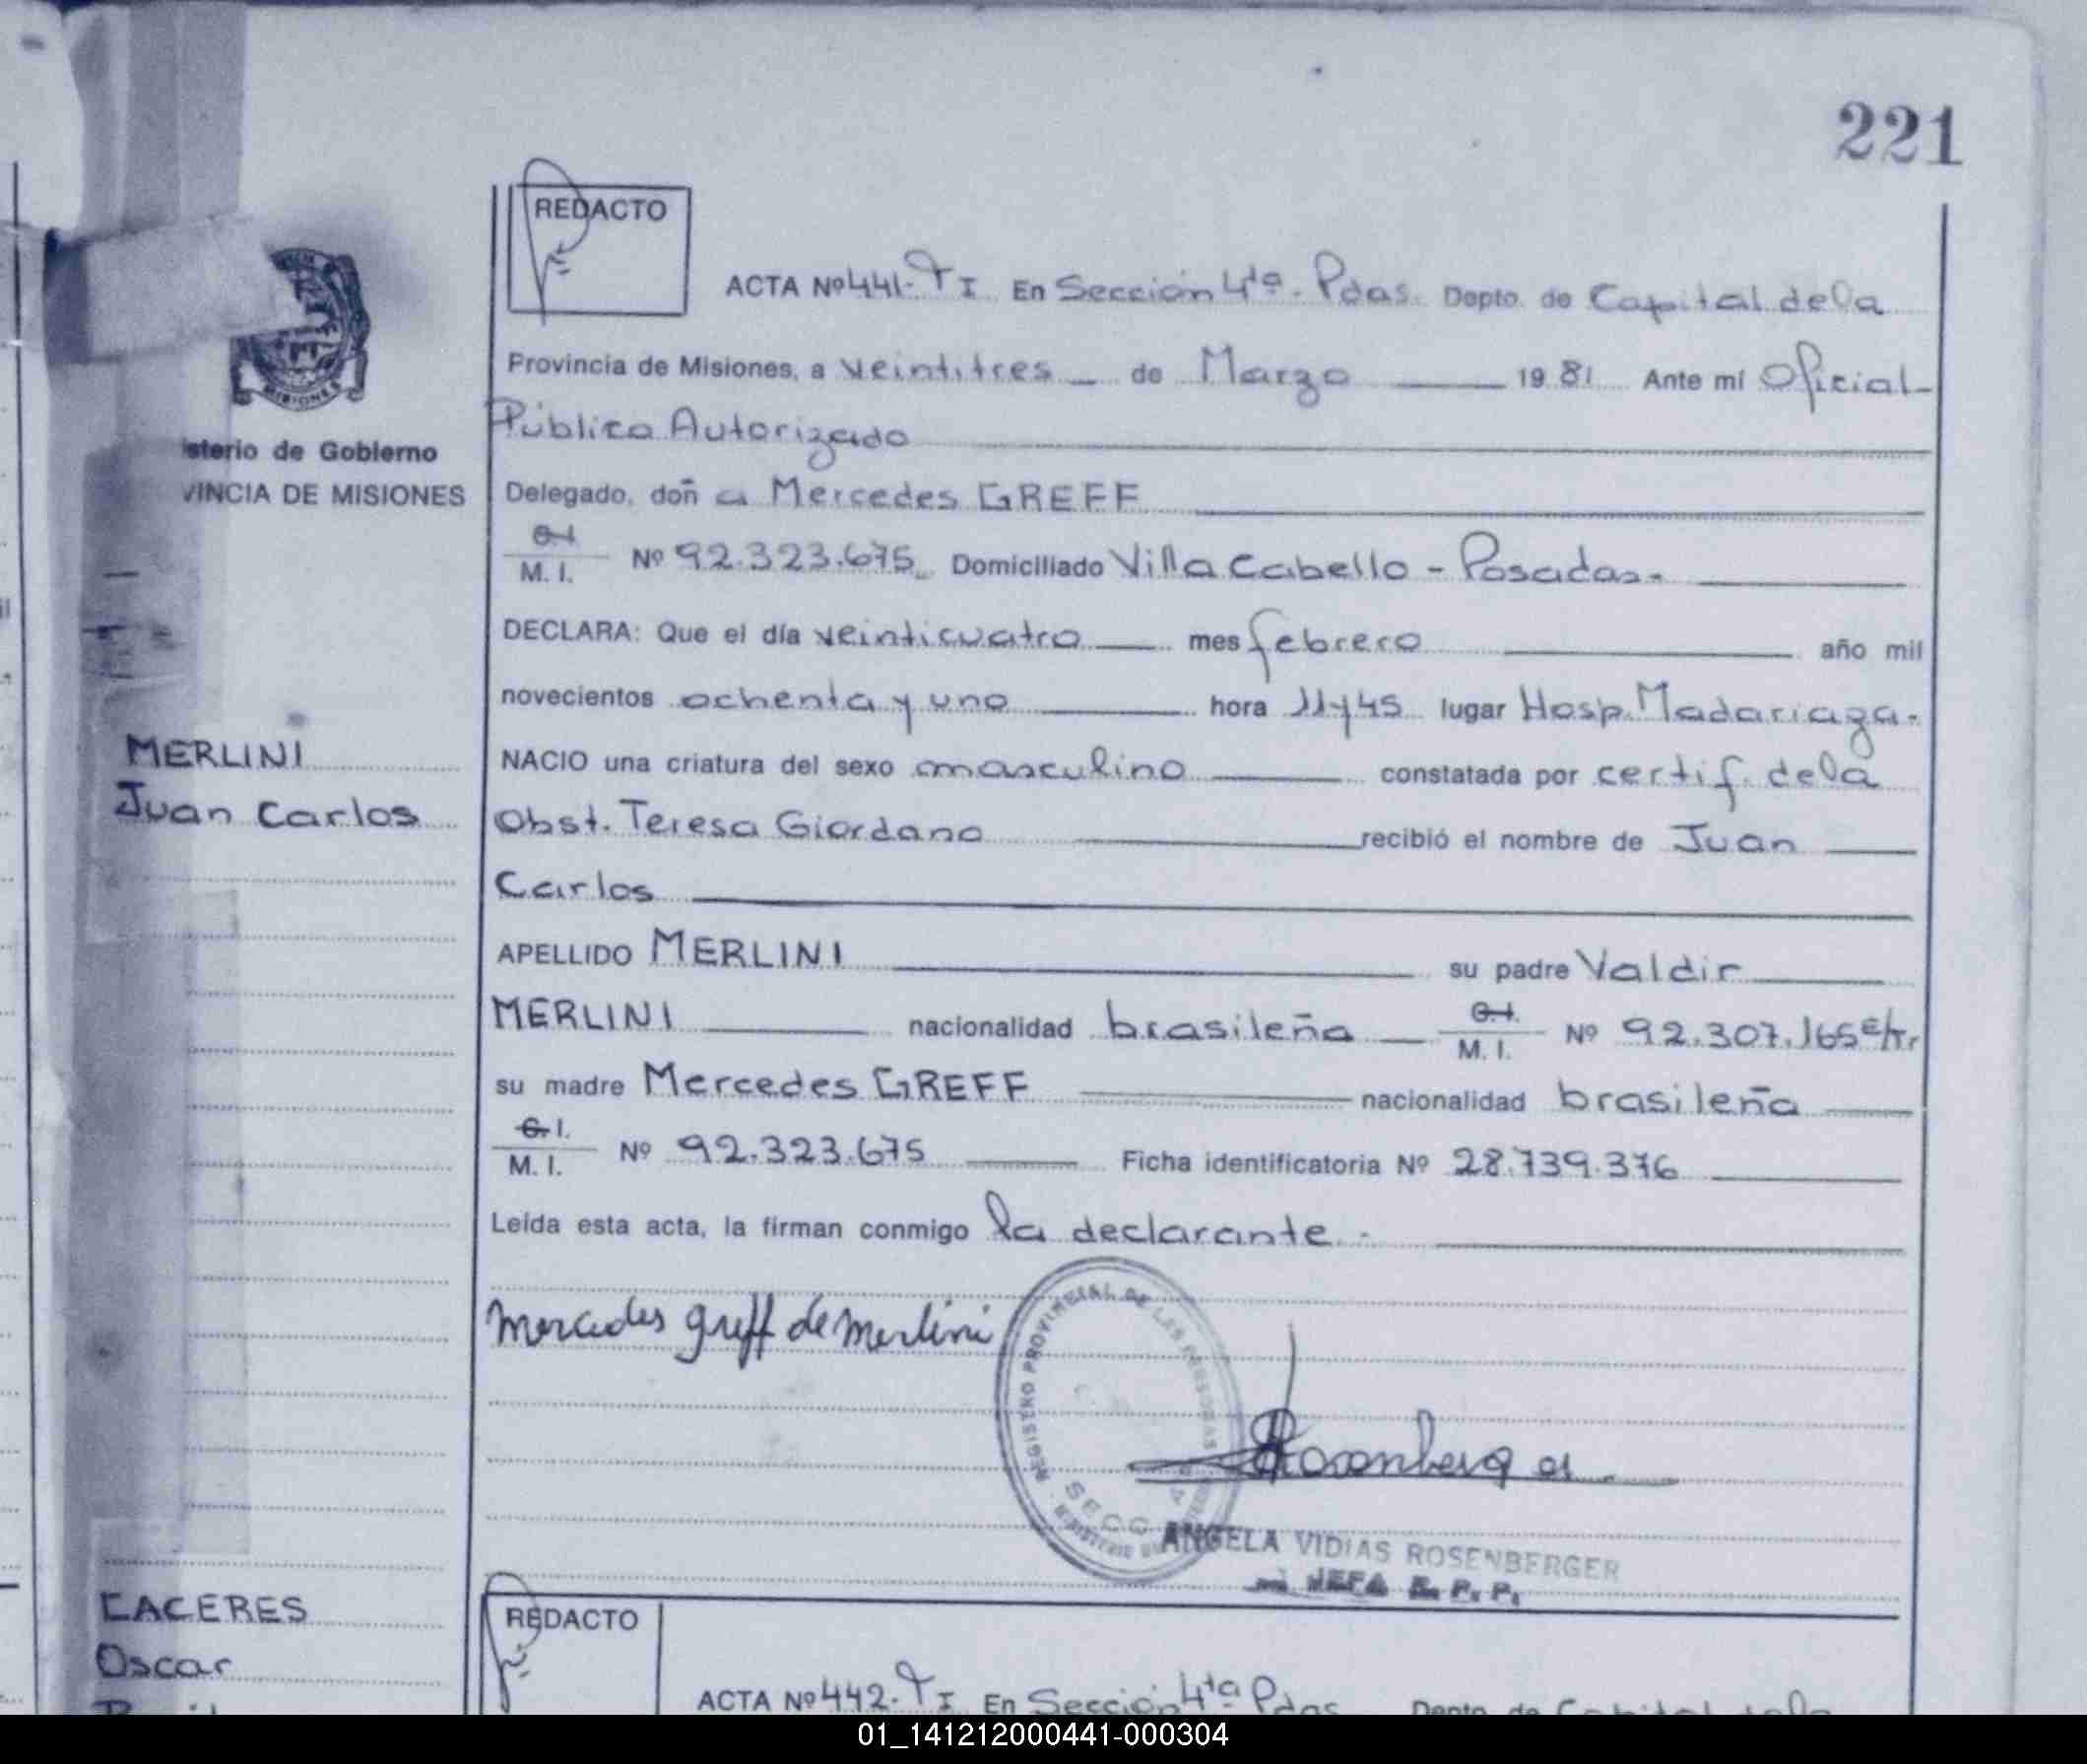 221
REDACTO
ACTA Nº 441-TI En Sección 4ta. Pdas. Depto. de Capital de la
Provincia de Misiones, a veintitres de Marzo 1981 Ante mí Oficial
Público Autorizado
isterio de Gobierno
VINCIA DE MISIONES
MISIONES
Delegado, doña Mercedes GREFF
C.I.
M. I. Nº 92.323.675 Domiciliado Villa Cabello - Posadas.-
DECLARA: Que el día veinticuatro mes febrero año mil
novecientos ochenta y uno hora 11y45 lugar Hosp. Madariaga.
MERLINI
Juan Carlos
NACIO una criatura del sexo masculino constatada por certif. de la
Obst. Teresa Giordano recibió el nombre de Juan
Carlos
APELLIDO MERLINI su padre Valdir
MERLINI nacionalidad brasileña C.I.
M. I. Nº 92.307.165 Etr.
su madre Mercedes GREFF nacionalidad brasileña
C.I.
M. I. Nº 92.323.675 Ficha identificatoria Nº 28.739.376
Leída esta acta, la firman conmigo la declarante.-
mercedes greff de merlini
REGISTRO PROVINCIAL DE LAS PERSONAS
SECC
ANGELA VIDIAS ROSENBERGER
JEFA R. P. P.
CACERES
Oscar
REDACTO
ACTA Nº 442-TI En Sección 4ta Pdas. Depto. de Capital de la
01_141212000441-000304